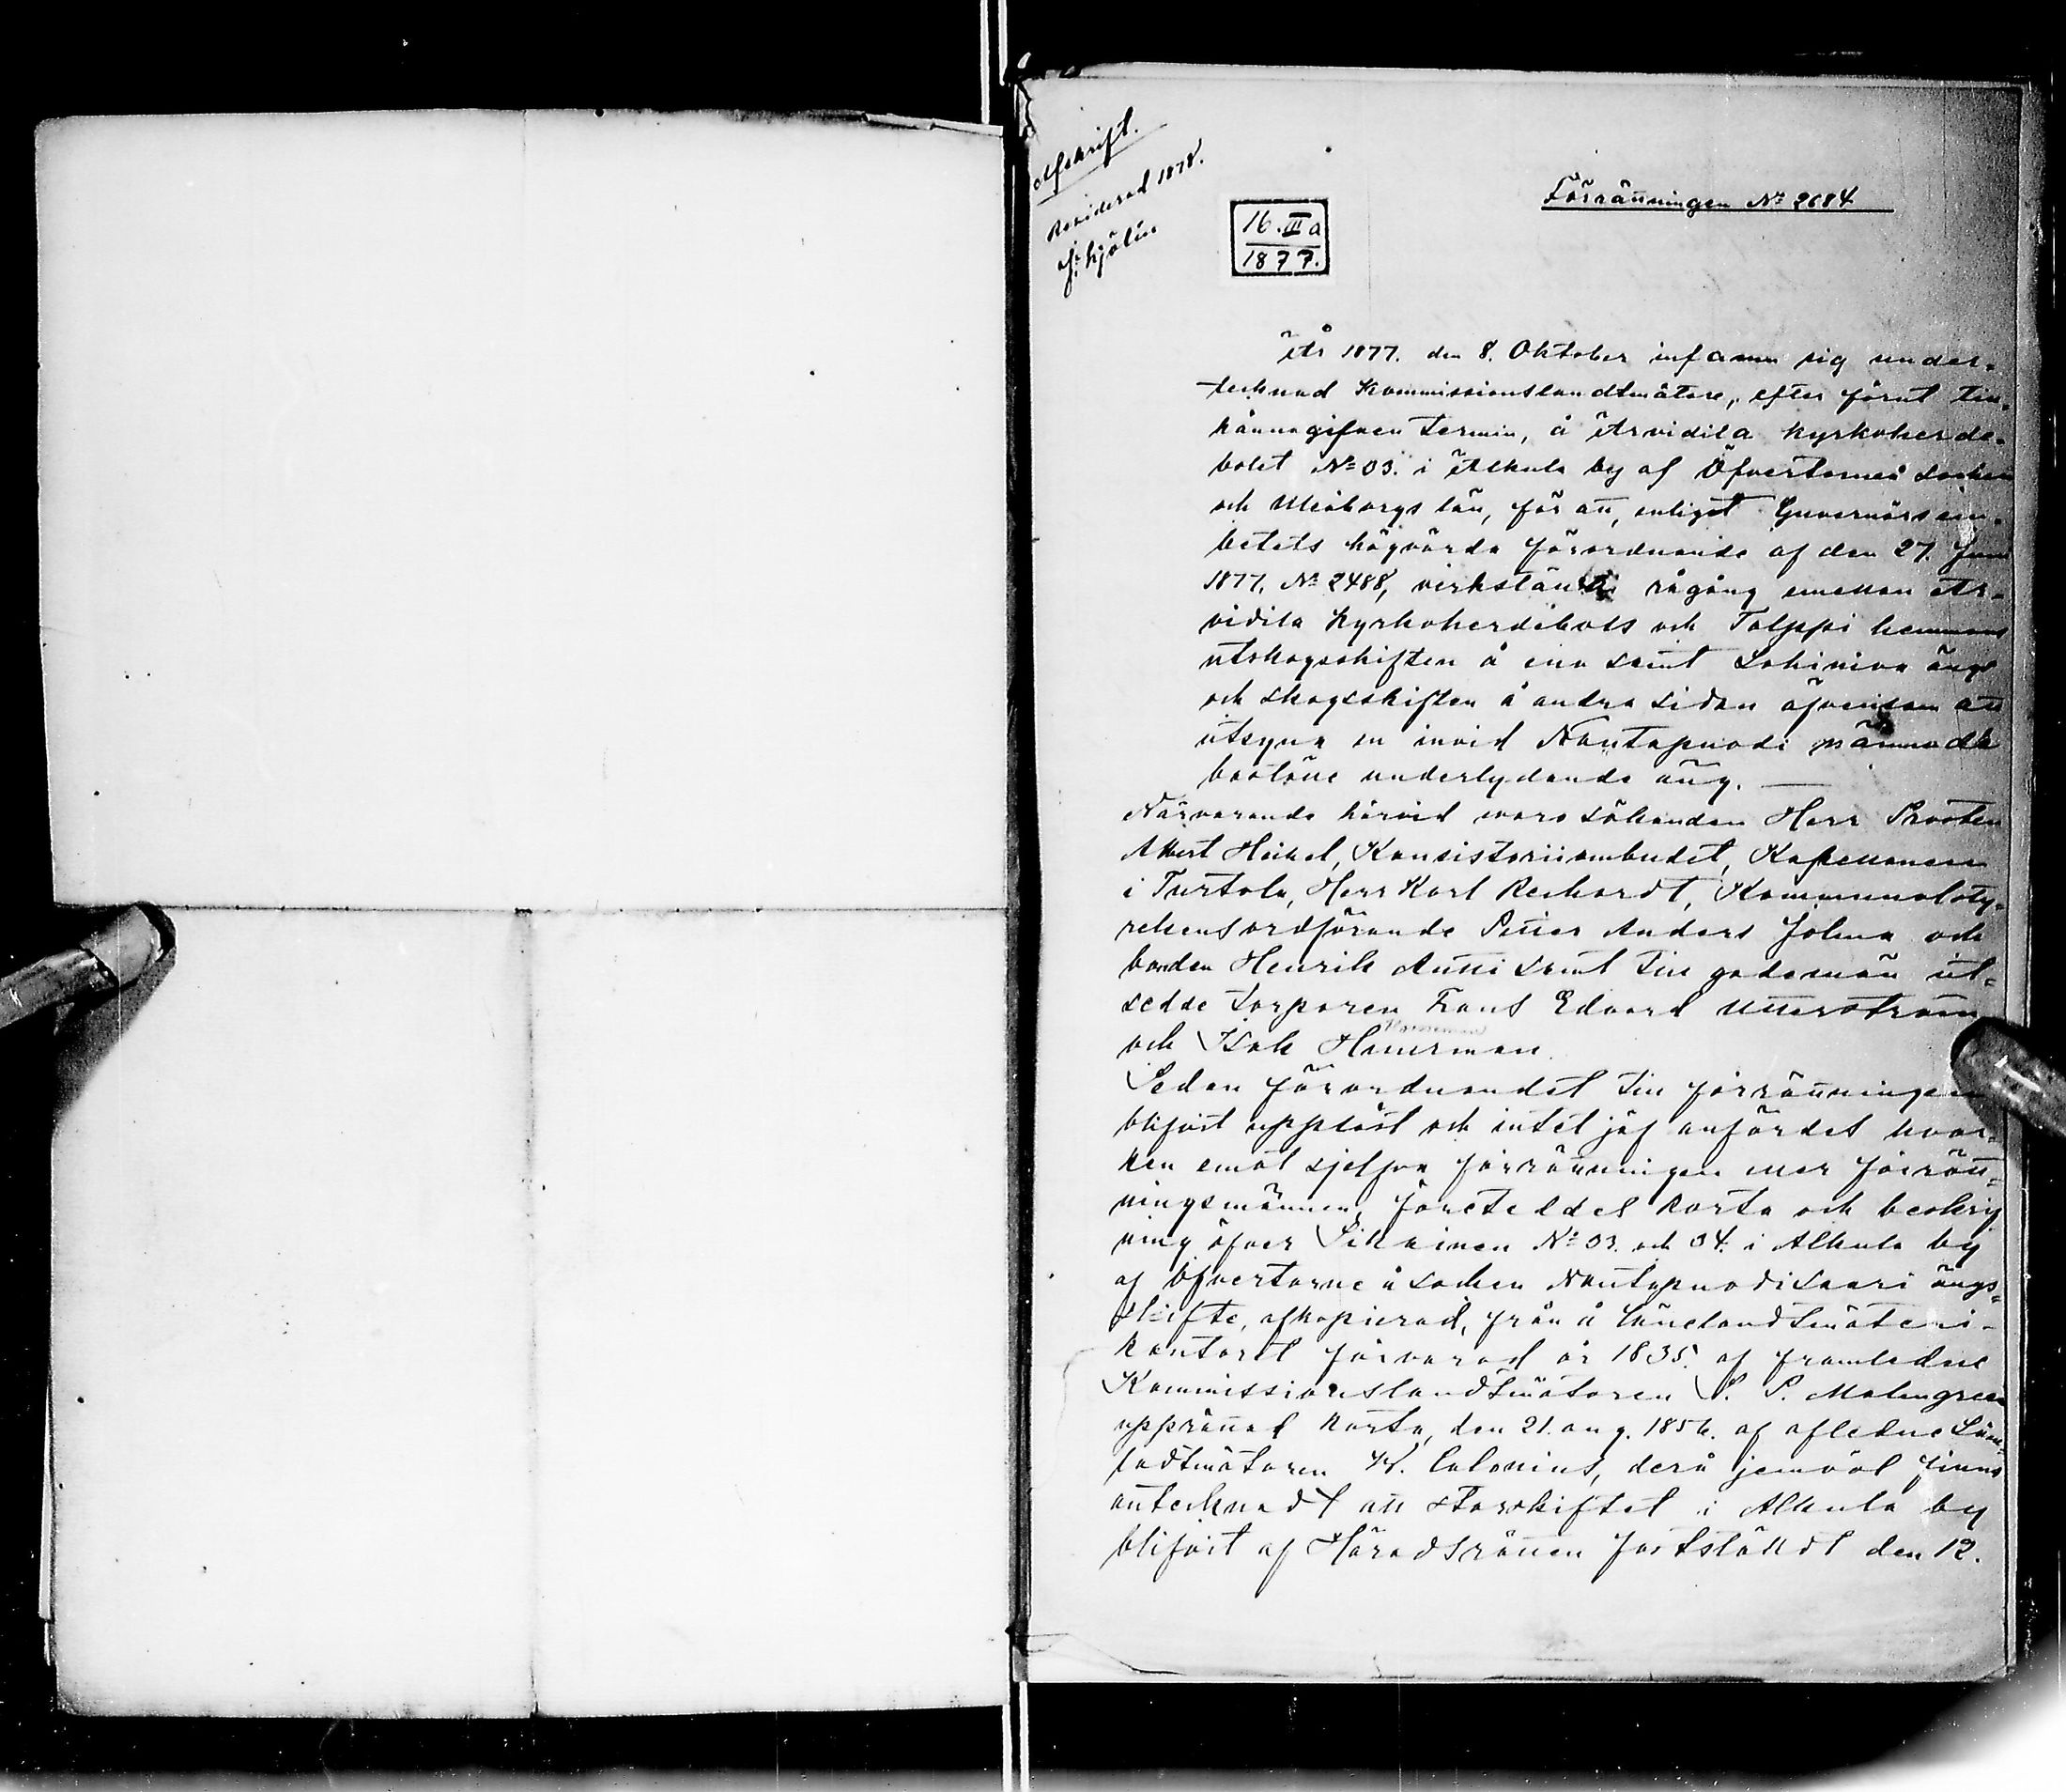 Afskrift.
Reviderad 1878.
Förrättningen № 2684
16.III a
1877.
År 1877. den 8. Oktober infann sig under-
tecknad Kommissionslandtmätare, efter förut till-
kännagifven termin, å Arvidila kyrkoherde-
bolet № 03. i Alkula by af Öfvertorneå socken
och Uleåborgs län, för att, enligt Guvernörsem-
betets högvörda förordnande af den 27. Juni
1877, № 2488, verkställa rågång emellan Ar-
vidila Kyrkoherdebols och Tolppi hemmans
utskogsskiften å ena samt Lohiniva ängs
och skogsskiften å andra sidan äfvensom att
utsyna en invid Nautapuodi nämnde
boställe underlydande äng.
Närvarande härvid voro sökanden Herr Prosten
Albert Heikel, Konsistoriiombudet, Kapellanen
i Turtola, Herr Karl Reihardt, Kommunalsty-
relsens ordförande Petter Anders Jolma och
bonden Henrik Antti samt till godemän ut-
sedde torparen Frans Edvard Utterström
och Isak Hannerman.
Sedan förordnandet till förrättningen
blifvit uppläst och intet jäf anfördes hvar-
ken emot sjelfva förrättningen eller förrätt-
ningsmännen, företeddes karta och beskrif
ning öfver Sikainen № 03. och 04. i Alkula by
af Öfvertorneå socken Nautapuodisaari ängs-
skifte, afkopierad, från å länelandtmäteri-
kontoret förvarad år 1835. af framledne
Kommissionslandtmätaren S. P. Malmgreen
upprättad karta, den 21. aug. 1856. af afledne Län-
ladtmätaren W. Calonius, derå jemväl finns
antecknadt att storskiftet i Alkula by
blifvit af Häradsrätten fastställdt den 12.